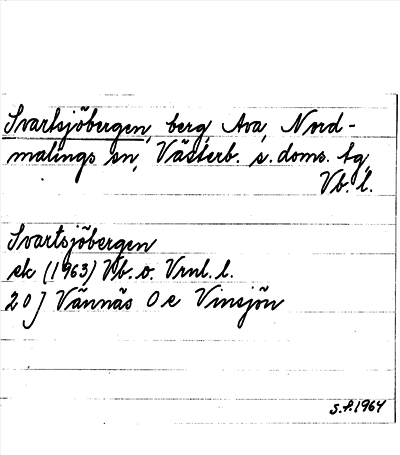 Svartsjöbergen, berg, Ava, Nord-
malings sn, Västerb. s. doms. tg,
Vb. l.
Svartsjöbergen
ek (1963) Vb. o. Vrml. l.
20 J Vännäs Oe Vinsjön
S.F. 1964